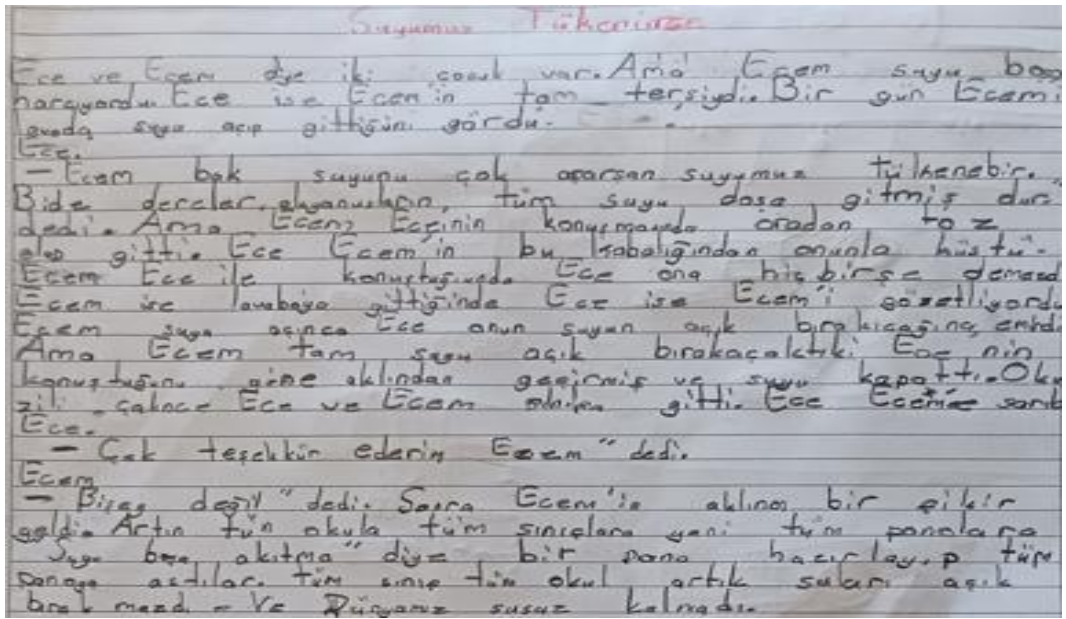 Suyumuz Tükenirse
Ece ve Ecem diye iki çocuk var. Ama Ecem suyu boş
harcıyordu. Ece ise Ecem'in tam tersiydi. Bir gün Ecemi
suyu açıp gittiğini gördü.
Ece.
— Ecem bak suyunu çok açarsan suyumuz tülkenebir.
Bide dereler, okyanusların, tüm suyu boşa gitmiş dur.
dedi. Ama Ecem oradan toz
olup gitti. Ece Ecem'in bu kabalığından onunla küstü.
Ecem Ece ile konuştuğunda Ece ona hiçbirşe demed
Ecem ise lavaboya gittiğinde Ece ise Ecem'i gözetliyordu
Ecem suyu açınca Ece onun suyun açık
Ama Ecem tam suyu açık bırakacaktıki Ece'nin
konuştuğunu gene aklından geçirmiş ve suyu kapattı. Oku
zili çalınca Ece ve Ecem gitti. Ece
Ece.
— Çok teşekkür ederim Ecem" dedi.
Ecem
— Birşey değil" dedi. Sonra Ecem'in aklına bir fikir
geldi. Artın tün okula tüm sınıflara yani tüm panolara
Suyu boşa akıtma" diye bir pano hazırlayıp tüm
panoya astılar. Tüm sınıf tüm okul artık suları açık
bırakmazd. Ve Dünyamız susuz kalmadı.